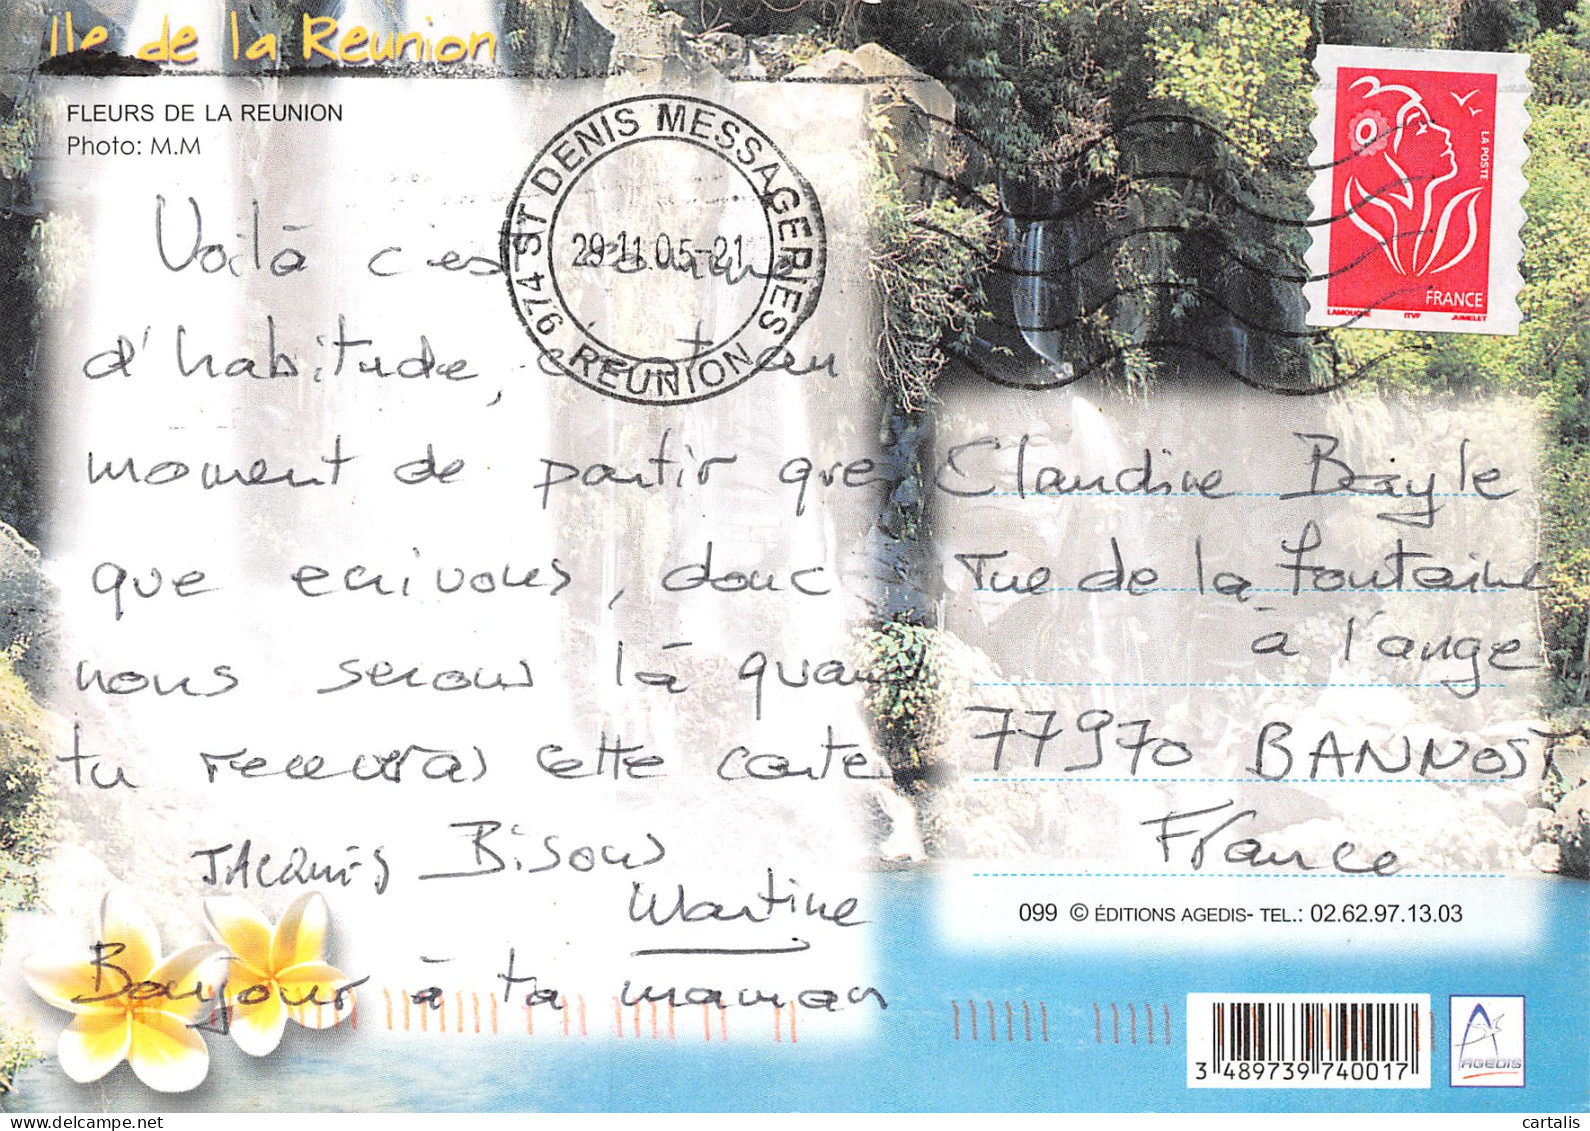 Ile de la Reunion
FLEURS DE LA REUNION
Photo: M.M
Voilà c'est comme
d'habitude, c'est au
moment de partir que
que ecrivons, donc
nous serons là quand
tu recevras cette carte
JACQUES Bisous
Martine
Bonjour à ta maman
974 ST DENIS MESSAGERIES
29-11.05-21
REUNION
LA POSTE
FRANCE
LAMOUCHE ITVF JUMELET
Claudine Bayle
rue de la fontaine
à l'ange
77970 BANNOST
France
099 © ÉDITIONS AGEDIS- TEL.: 02.62.97.13.03
3 489739 740017
AGEDIS
cartalis